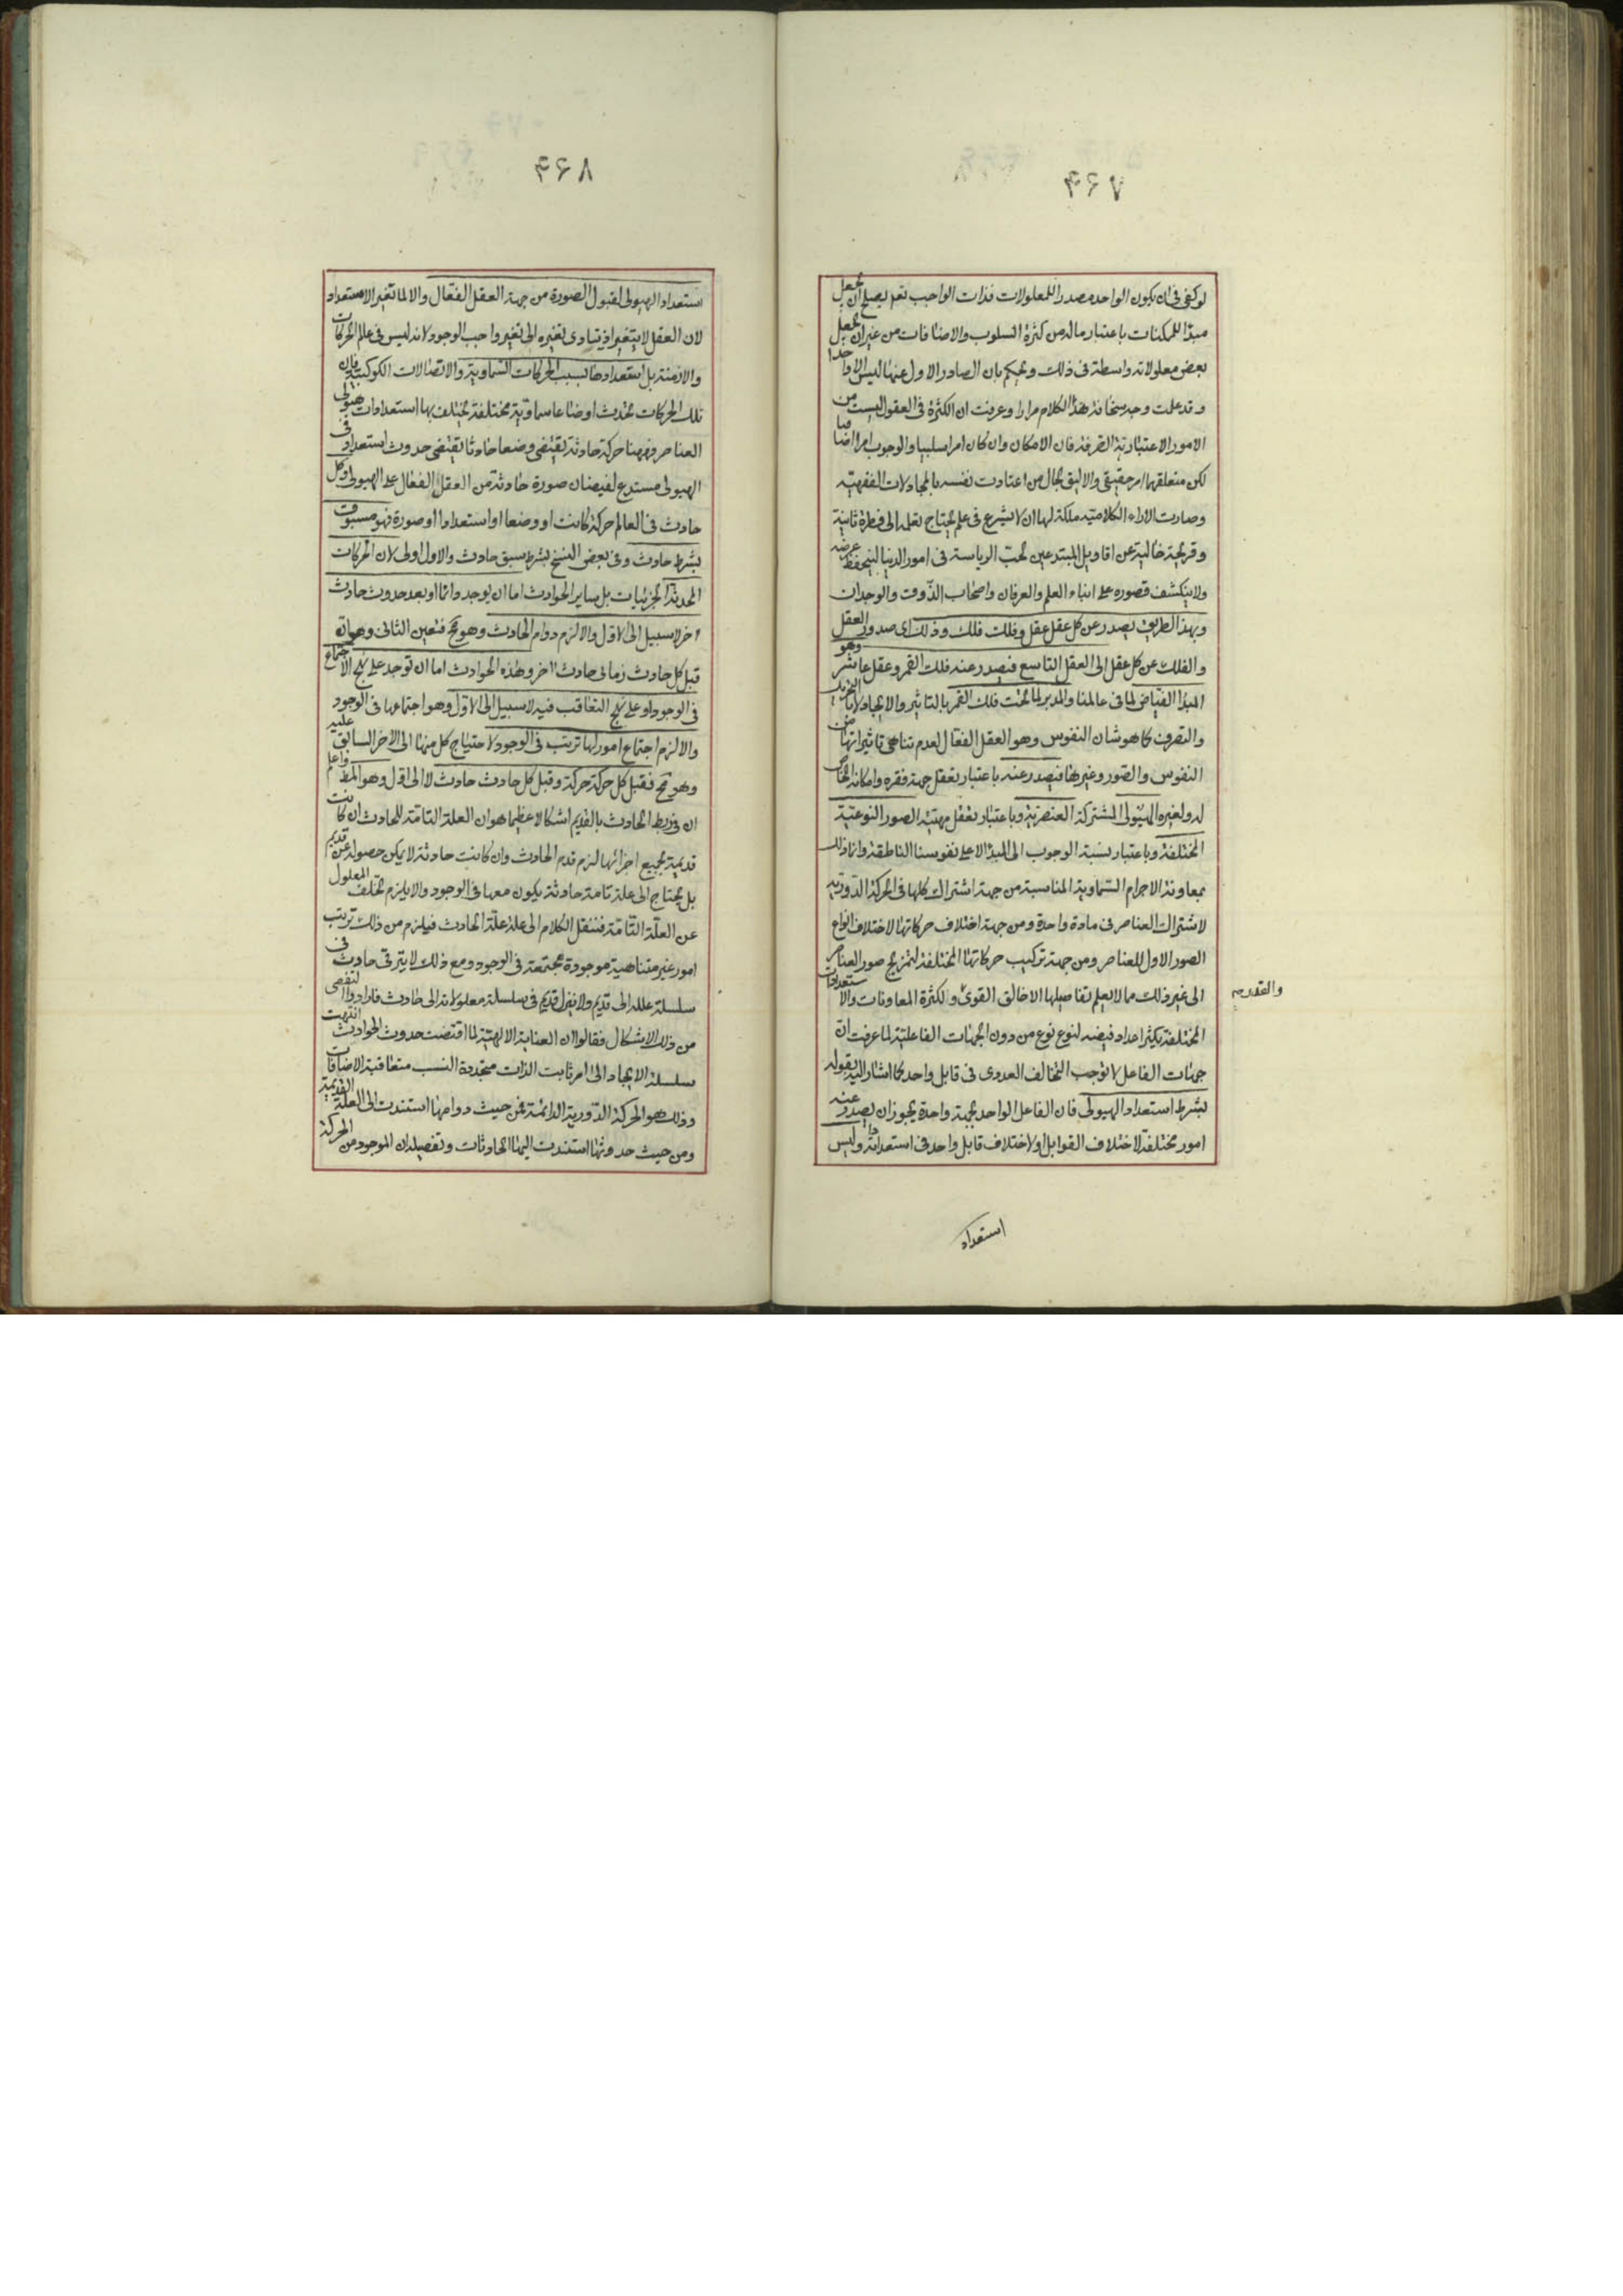 ۴۶۷
لو كفى فى ان يكون الواحد مصدرا للمعلولات فذات الواجب تعم يصلح ان يجعل
مبدأ للممكنات باعتبار ماله من كثرة السلوب والاضافات من غير ان يجعل
بعض معلولاته واسطة فى ذلك و يحكم بان الصادر الاول عنها ليس الا واحدا
و قد علمت وجه سخافة هذا الكلام مرارا وعرفت ان الكثرة فى العقول ليست من
الامور الاعتبارية الصرفة فان الامكان وان كان امرا سلبيا والوجوب امرا اضافيا
لكن متعلقهما امر حقيقى والاليق بحال من اعتادت نفسه بالمجادلات الفقهيته
وصارت الاراء الكلاميته ملكة لها ان لا يشرع فى علم يحتاج تعلمه الى فطرة ثانية
و قريحة خالية عن اقاويل المبتدعين لحب الرياسة فى امور الدنيا ليتحفظ عرضه
ولا ينكشف قصوره على ابناء العلم والعرفان واصحاب الذوق والوجدان
وبهذا الطريق يصدر عن كل عقل عقل وفلك فلك وذلك اى صدور العقل
و الفلك عن كل عقل الى العقل التاسع فيصدر عنه فلك القمر وعقل عاشر وهو
المبدأ الفياض لما فى عالمنا والمدبر لما تحت فلك القمر بالتاثير والايجاد لا بالتحريك
والتصرف كما هو شان النفوس وهو العقل الفعال لعدم تناهى تاثيراتها من
النفوس والصور وغيرها فيصدر عنه باعتبار تعقل جهة فقره وامكانه الخاص
له ولغيره الهيولى المشتركة العنصرية وباعتبار تعقل مهيته الصور النوعية
المختلفة وباعتبار نسبة الوجوب الى المبدأ الاعلى نفوسنا الناطقة وانما ذلك
بمعاونة الاجرام السماوية المناسبة من جهة اشتراك كلها فى الحركة الدورية
لاشتراك العناصر فى مادة واحدة ومن جهة اختلاف حركاتها لاختلاف انواع
الصور الاول للعناصر ومن جهة تركيب حركاتها المختلفة لتمزيج صور العناصر
الى غير ذلك مما لا يعلم تفاصيلها الا خالق القوى والقدر ولكثرة المعاونات والاستعدادات
المختلفة يكثر اعداد فيضه لنوع نوع من دون الجهات الفاعلية لما عرفت ان
جهات الفاعل لا توجب التخالف العددى فى قابل واحد كما اشار اليه بقوله
بشرط استعداد الهيولى فان الفاعل الواحد بجهة واحدة يجوز ان يصدر عنه
امور مختلفة لاختلاف القوابل او لاختلاف قابل واحد فى استعداداته وليس
استعداد
۴۶۸
استعداد الهيولى لقبول الصورة من جهة العقل الفعال والا لما تغير الاستعداد
لان العقل لا يتغير اذ يتادى تغيره الى تغير واجب الوجود لانه ليس فى عالم الحركات
والازمنة بل استعدادها بسبب الحركات السماوية والاتصالات الكوكبية فان
تلك الحركات تحدث اوضاعا سماوية مختلفة يختلف بها استعدادات هيولى
العناصر فههنا حركة حادثة يقتضى وضعا حادثا يقتضى حدوث استعداد فى
الهيولى مستدع لفيضان صورة حادثة من العقل الفعال على الهيولى وكل
حادث فى العالم حركة كانت او وضعا او استعدادا او صورة فهو مسبوق
بشرط حادث وفى بعض النسخ بشرط سبق حادث والاول اولى لان الحركات
المحدثة الجزئيات بل ساير الحوادث اما ان يوجد دائما او بعد حدوث حادث
اخر لا سبيل الى الاول والا لزم دوام الحادث وهو مح فتعين الثانى وهو انه
قبل كل حادث زمانى حادث اخر وهذه الحوادث اما ان توجد على نهج الاجتماع
فى الوجود او على نهج التعاقب فيه لا سبيل الى الاول وهو اجتماعها فى الوجود
والا لزم اجتماع امور لها ترتب فى الوجود لاحتياج كل منها الى الاخر السابق عليه
وهو مح فقبل كل حركة حركة وقبل كل حادث حادث لا الى اول وهو المط واعلم
ان فى ربط الحادث بالقديم اشكالا عظيما هو ان العلة التامة للحادث ان كانت
قديمة بجميع اجزائها لزم قدم الحادث وان كانت حادثة لا يمكن حصوله عن قديم
بل يحتاج الى علة تامة حادثة يكون معها فى الوجود والا يلزم تخلف المعلول
عن العلة التامة فننقل الكلام الى علة علة الحادث فيلزم من ذلك ترتب
امور غير متناهية موجودة مجتمعة فى الوجود ومع ذلك لا يترقى حادث فى
سلسلة علله الى قديم ولا ينزل قديم فى سلسلة معلولاته الى حادث فارادوا التفصى
من ذلك الاشكال فقالوا ان العناية الالهية لما اقتضت حدوث الحوادث انتهت
سلسلة الايجاد الى امر ثابت الذات متجددة النسب متعاقبة الاضافات
وذلك هو الحركة الدورية الدائمة فمن حيث دوامها استندت الى العلة القديمية
ومن حيث حدوثها استندت اليها الحادثات وتفصيله ان الموجود من الحركة